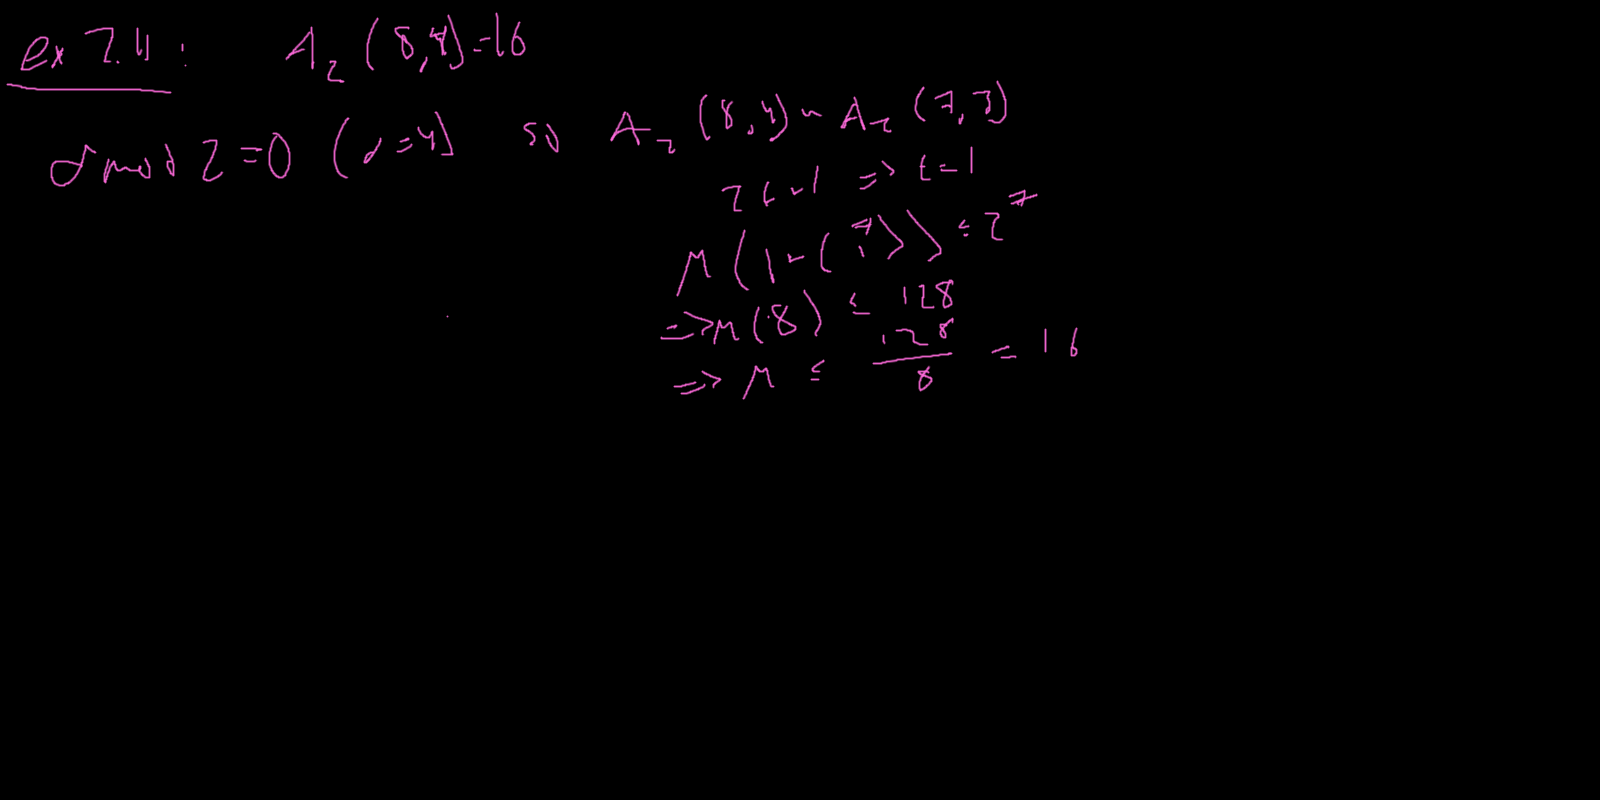 ex 2.4: A₂(8,4)=16
d mod 2=0 (d=4) so A₂(8,4) = A₂(7,3)
2t+1 => t=1
M(1+(7 1)) ≤ 2⁷
=> M(8) ≤ 128
=> M ≤ 128/8 = 16